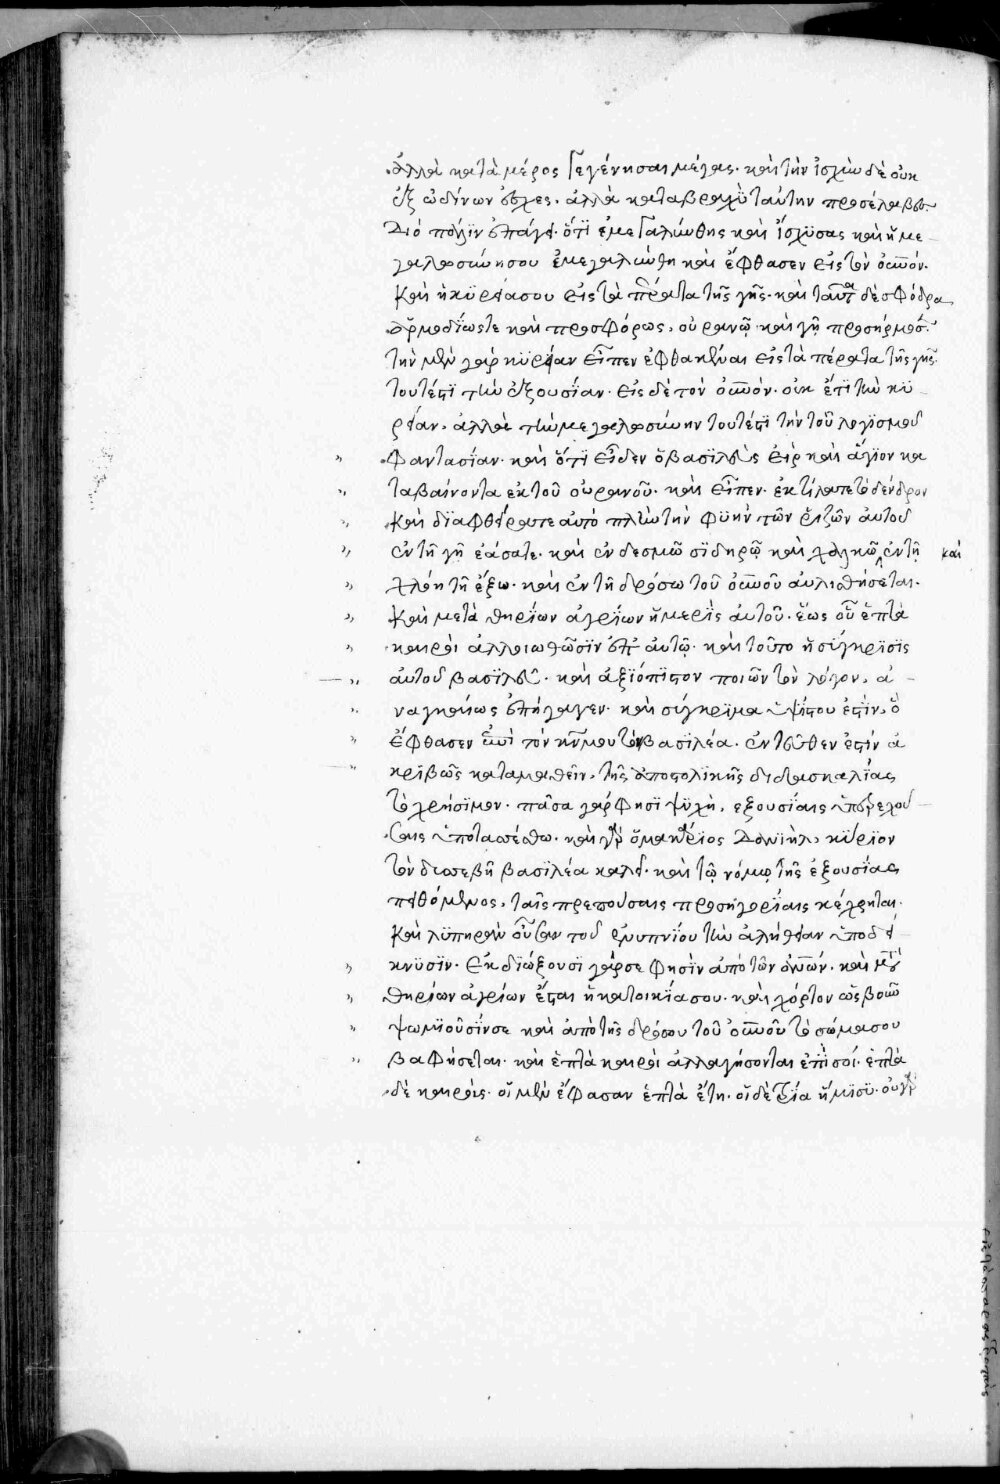 ἀλλὰ κατὰ μέρος γεγέννησαι μέγας· καὶ τὴν ἰσχὺν δὲ οὐκ
ἐξ ὠδίνων ἔσχες· ἀλλὰ καταβραχὺ ταύτην προσέλαβες·
Διό πάλϊν ἐπάγει· ὅτϊ ἐμεγαλύνθης καὶ ἴσχυσας καὶ ἡ με
γαλοσύνη σου ἐμεγαλύνθη καὶ ἔφθασεν εἰς τὸν οὐνον·
καὶ ἡ κϋρεία σου εἰς τὰ πέρατα τῆς γῆς· καὶ ταῦτα δὲ σφόδρα
ἁρμοδΐως τε καὶ προσφόρως, οὐρανῷ καὶ γῇ προσήρμοσε·
τὴν μὲν γὰρ κϋρείαν εἶπεν ἐφθακέναι εἰς τὰ πέρατα τῆς γῆς·
τουτέστϊ τὴν ἐξουσΐαν· εἰς δὲ τὸν οὐνόν· οὐκ ἔτϊ τὴν κϋ
ρείαν· ἀλλὰ τὴν μεγαλοσύνην τουτέστϊ τὴν τοῦ λογϊσμοῦ
φαντασΐαν· καὶ ὅτϊ εἶδεν ὁ βασϊλεὺς εἲρ καὶ ἅγϊον κα
ταβαίνοντα ἐκ τοῦ οὐρανοῦ· καὶ εἶπεν· ἐκτίλατε τὸ δένδρον
καὶ δϊαφθείρατε αὐτό πλὴν τὴν φϋὴν τῶν ῥιζῶν αὐτοῦ
ἐν τῇ γῇ ἐάσατε· καὶ ἐν δεσμῷ σϊδηρῷ καὶ χαλκῷ ἐν τῇ καὶ
χλόῃ τῇ ἔξω· καὶ ἐν τῇ δρόσω τοῦ οὐνοῦ αὐλισθήσεται·
καὶ μετὰ θηρΐων ἀγρΐων ἡ μερὶς αὐτοῦ· ἕως οὗ ἑπτὰ
καιροὶ ἀλλοιωθῶσϊν ἐπ' αὐτῷ· καὶ τοῦτο ἡ σύγκρϊσϊς
αὐτοῦ βασϊλεῦ· καὶ ἀξϊόπϊστον ποιῶν τὸν λόγον, ἀ
ναγκαίως ἐπήγαγεν· καὶ σύγκρϊμα ὑψίστου ἐστὶν, ὃ
ἔφθασεν ἐπὶ τὸν κν μου τὸν βασϊλέα· ἐντεῦθεν ἐστίν ἀ
κρϊβῶς καταμαθεῖν, τῆς ἀποστολϊκῆς διδασκαλΐας
τὸ χρήσϊμον· πᾶσα γάρ φησϊ ψϋχὴ, εξουσΐαις ὑπερεχού
σαις ὑποτασσέσθω· καὶ γὰρ ὁ μακάρϊος Δανϊὴλ, κύρϊον
τὸν δυσσεβῆ βασϊλέα καλεῖ· καὶ τῷ νόμῳ τῆς ἐξουσΐας
πειθόμενος, ταῖς πρεπούσαις προσηγορΐαις κέχρηται·
καὶ λϋπηρὰν οὖσαν τοῦ ἐνυπνΐου τὴν ἀλήθειαν ὑποδεί
κνϋσϊν· Ἐκδϊώξουσί γάρ σε φησὶν ἀπὸ τῶν ἀνων· καὶ μετὰ
θηρίων ἀγρίων ἔσται ἡ κατοικΐα σου· καὶ χόρτον ὡς βοῦν
ψωμϊοῦσΐν σε καὶ ἀπὸ τῆς δρόσου τοῦ οὐνοῦ τὸ σῶμα σου
βαφήσεται· καὶ ἑπτὰ καιροὶ ἀλλαγήσονται ἐπὶ σοί· ἑπτὰ
δὲ καιροὺς· οἱ μὲν ἔφασαν ἑπτὰ ἔτη· οἱ δὲ τρΐα ἥμϊσϋ· οὐ γὰρ